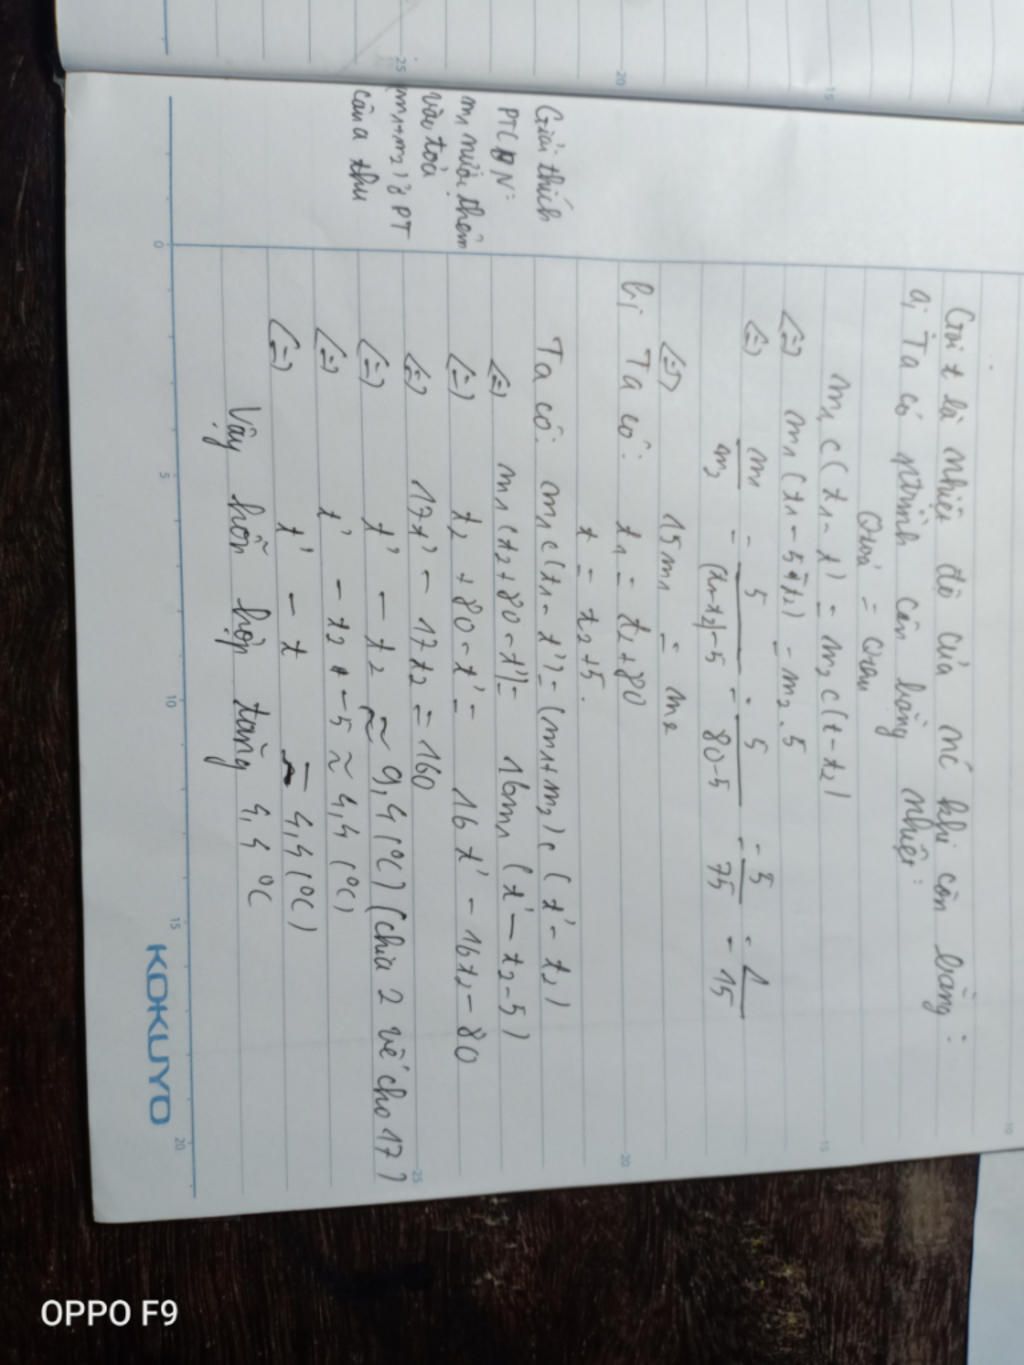 Gọi t là nhiệt độ của nc khi cân bằng:
a, Ta có ptrình cân bằng nhiệt:
Qtoả = Qthu
m1 c(t1 - t) = m2 c(t - t2)
<=> m1 (t1 - 5 - t2) = m2.5
<=> m1/m2 = 5/((t1-t2)-5) = 5/(80-5) = 5/75 = 1/15
<=> 15m1 = m2
b, Ta có: t1 = t2 + 80
t = t2 + 5.
Ta có: m1 c(t1 - t') = (m1+m2) c (t' - t2)
<=> m1 (t2 + 80 - t') = 16m1 (t' - t2 - 5)
<=> t2 + 80 - t' = 16t' - 16t2 - 80
<=> 17t' - 17t2 = 160
<=> t' - t2 ≈ 9,4 (°C) (chia 2 vế cho 17)
<=> t' - t2 - 5 ≈ 4,4 (°C)
<=> t' - t = 4,4 (°C)
Vậy hỗn hợp tăng 4,4 °C
Giải thích
PTCBN:
m1 nước thêm
vào toả
(m1+m2) ở PT
câu a thu
KOKUYO
0
5
10
15
20
25
15
20
25
20
15
10
OPPO F9